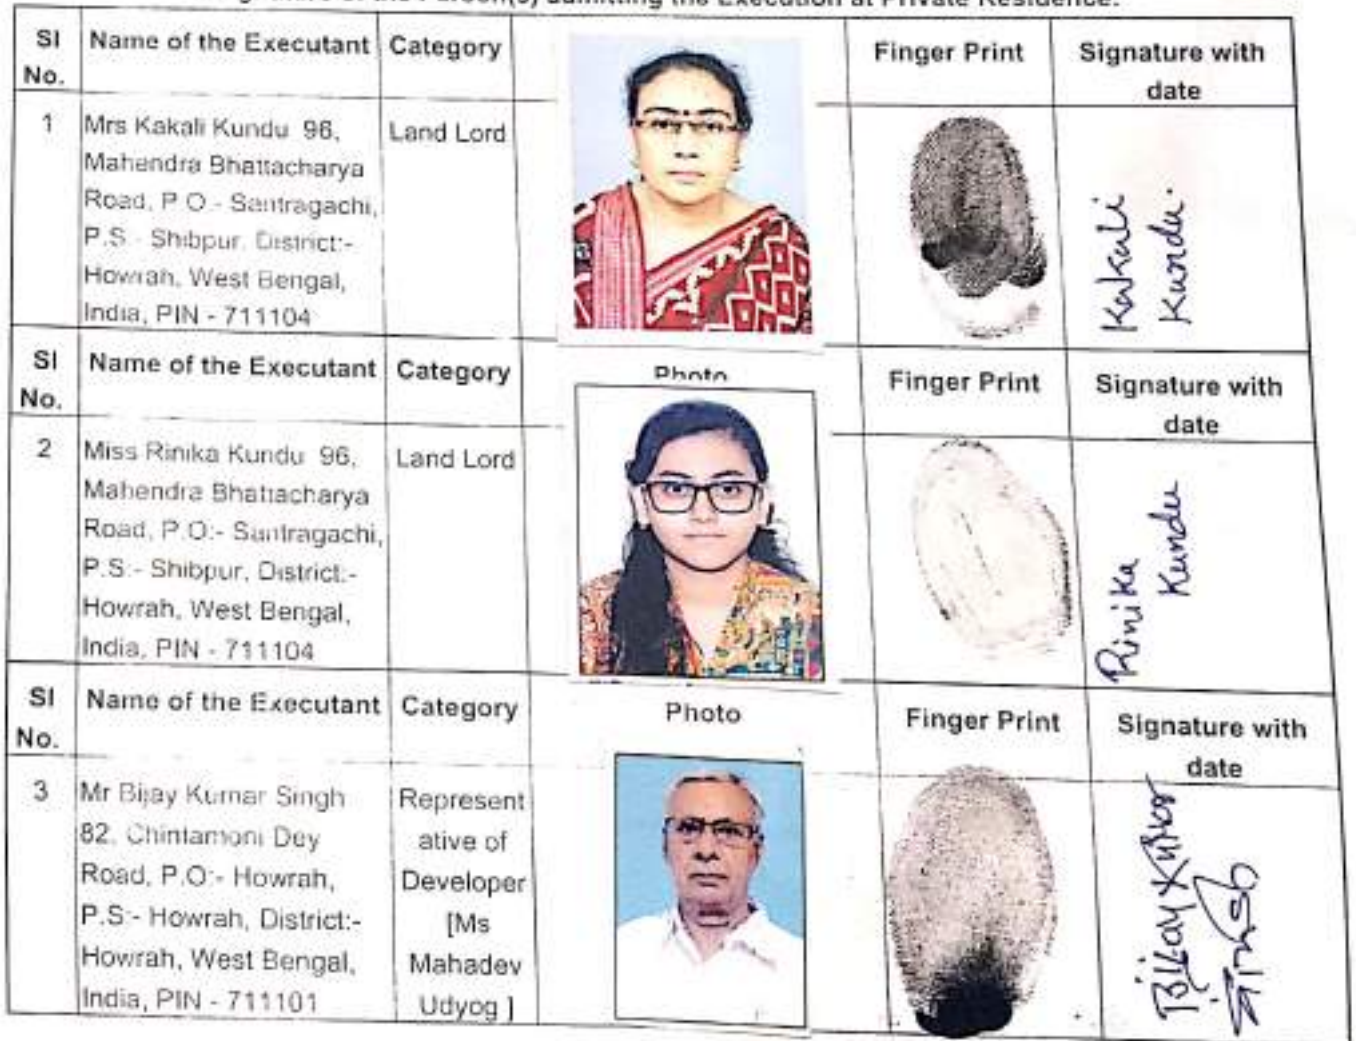 the Person(s) admitting the Execution at Private Residence.
SI No. Name of the Executant Category Finger Print Signature with date
1 Mrs Kakali Kundu 96, Land Lord
Mahendra Bhattacharya
Road, P.O.- Santragachi,
P.S.- Shibpur, District:-
Howrah, West Bengal,
India, PIN - 711104
Kakali
Kundu.
SI No. Name of the Executant Category Photo Finger Print Signature with date
2 Miss Rinika Kundu 96, Land Lord
Mahendra Bhattacharya
Road, P.O:- Santragachi,
P.S:- Shibpur, District:-
Howrah, West Bengal,
India, PIN - 711104
Rinika
Kundu
SI No. Name of the Executant Category Photo Finger Print Signature with date
3 Mr Bijay Kumar Singh
82, Chintamoni Dey
Road, P.O:- Howrah,
P.S:- Howrah, District:-
Howrah, West Bengal,
India, PIN - 711101
Represent
ative of
Developer
[Ms
Mahadev
Udyog ]
Bijay Kumar
Singh